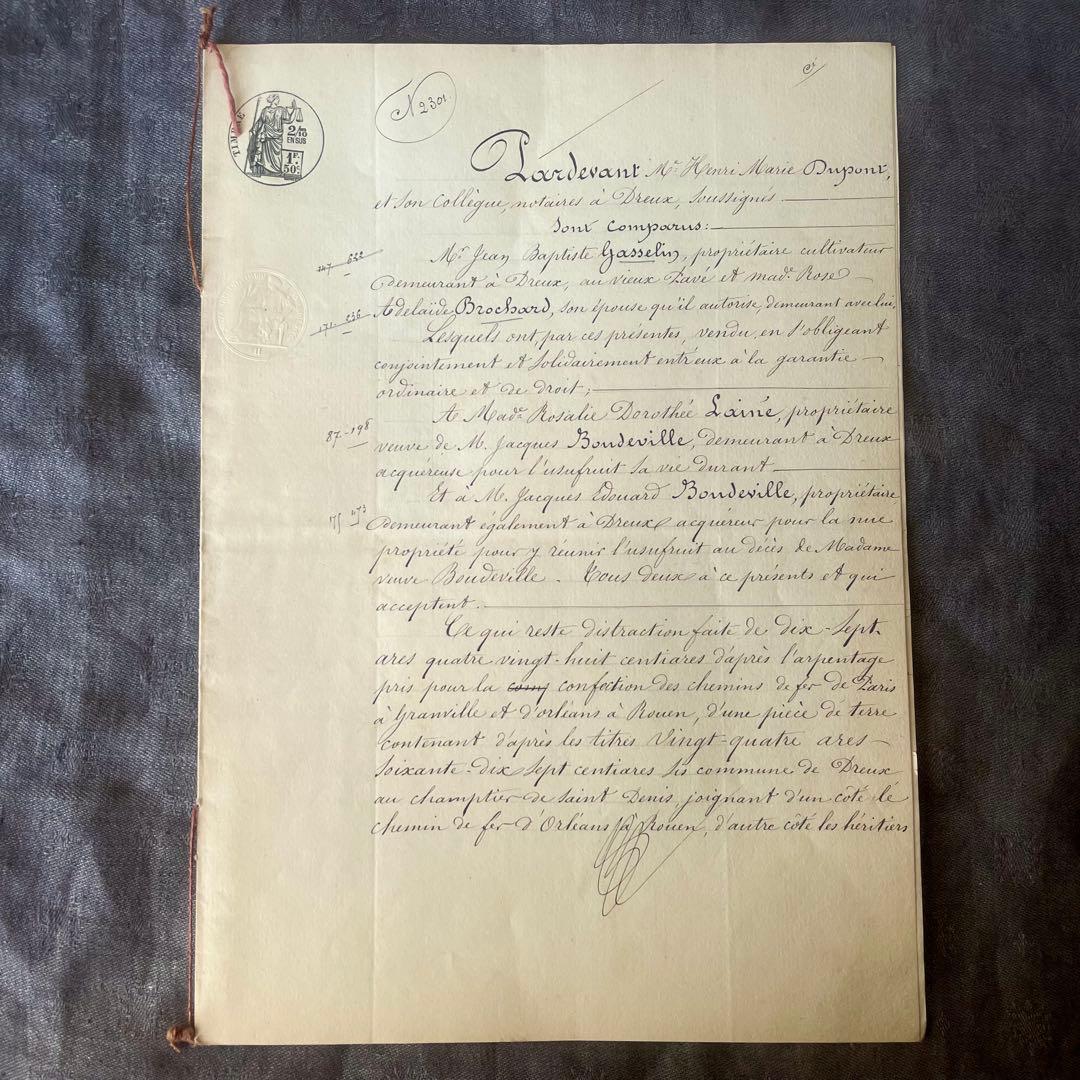 N 2301.
TIMBRE
2/10
EN SUS
1F.
50c.
Pardevant Me Henri Marie Dupont,
et son Collègue, notaires à Dreux, soussignés.
Sont comparus:
Mr Jean Baptiste Gasselin, propriétaire cultivateur
demeurant à Dreux, au vieux Pavé et made Rose
Adelaïde Brochard, son épouse qu'il autorise, demeurant avec lui.
Lesquels ont, par ces présentes, vendu, en s'obligeant
conjointement et solidairement entr'eux à la garantie
ordinaire et de droit;
A Made Rosalie Dorothée Lainé, propriétaire
87-198
veuve de M. Jacques Boudeville, demeurant à Dreux
acquéreuse pour l'usufruit sa vie durant
Et à M. Jacques Edouard Boudeville, propriétaire
demeurant également à Dreux acquéreur pour la nue
propriété pour y réunir l'usufruit au décès de Madame
veuve Boudeville. Tous deux à ce présents et qui
acceptent.
Ce qui reste distraction faite de dix-sept
ares quatre vingt-huit centiares d'après l'arpentage
pris pour la confection des chemins de fer de Paris
à Granville et d'orléans à Rouen, d'une pièce de terre
contenant d'après les titres vingt-quatre ares
soixante-dix sept centiares sis commune de Dreux
au champtier de Saint Denis, joignant d'un côté le
chemin de fer d'Orléans à Rouen, d'autre côté les héritiers